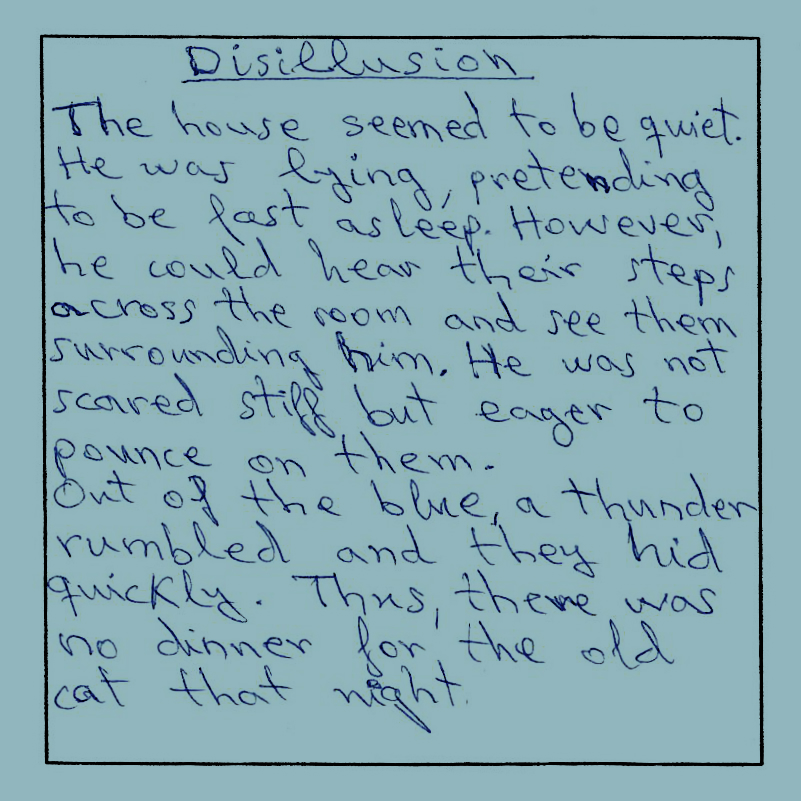 Disillusion
The house seemed to be quiet.
He was lying, pretending
to be fast asleep. However,
he could hear their steps
across the room and see them
surrounding him. He was not
scared stiff but eager to
pounce on them.
Out of the blue, a thunder
rumbled and they hid
quickly. Thus, there was
no dinner for the old
cat that night.